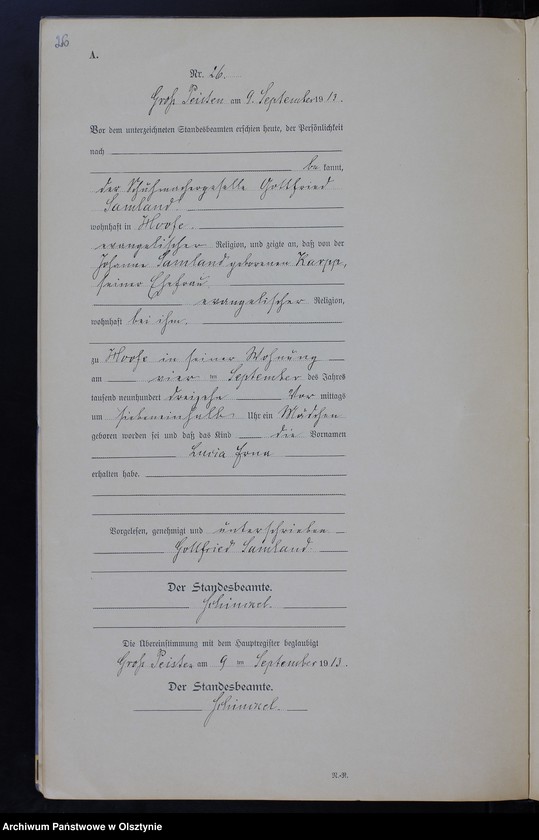 26
A.
Nr. 26.
Groß Peisten am 9. September 1913.
Vor dem unterzeichneten Standesbeamten erschien heute, der Persönlichkeit
nach
be kannt,
der Schuhmachergeselle Gottfried
Samland
wohnhaft in Woofe.
evangelischer Religion, und zeigte an, daß von der
Johanne Samland geborenen Karpp,
seiner Ehefrau
evangelischer Religion,
wohnhaft bei ihm.
zu Woofe in seiner Wohnung
am vier ten September des Jahres
tausend neunhundert dreizehn Vor mittags
um siebeneinhalb Uhr ein Mädchen
geboren worden sei und daß das Kind die Vornamen
Lucia Erna
erhalten habe.
Vorgelesen, genehmigt und unterschrieben
Gottfried Samland
Der Standesbeamte.
Die Übereinstimmung mit dem Hauptregister beglaubigt
Groß Peisten am 9 ten September 1913.
Der Standesbeamte.
Archiwum Państwowe w Olsztynie